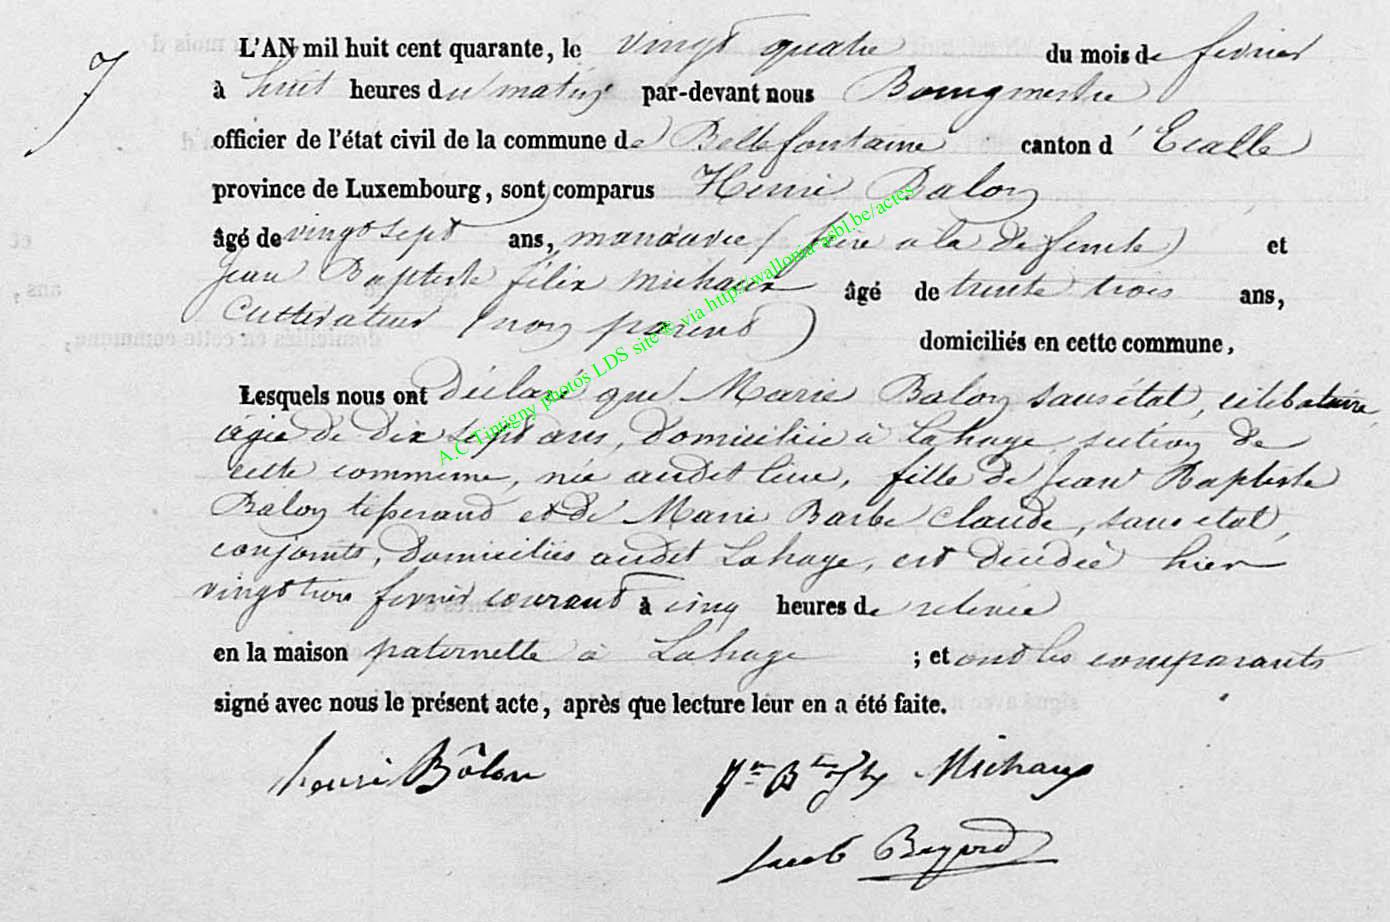 7
L'AN mil huit cent quarante, le vingt quatre du mois de fevrier
à huit heures du matin par-devant nous Bourgmestre
officier de l'état civil de la commune de Bellefontaine canton d'Etalle
province de Luxembourg, sont comparus Henri Balon
âgé de vingt sept ans, manœuvre (frère a la défunte) et
Jean Baptiste félix Michaux âgé de trente trois ans,
Cultivateur (non parent) domiciliés en cette commune,
Lesquels nous ont Déclaré que Marie Balon sans état, célibataire,
agée de dix sept ans, domiciliée à Lahage section de
cette commune, née audit lieu, fille de Jean Baptiste
Balon tisserand et de Marie Barbe Claude, sans etat,
conjoints, domiciliés audit Lahage, est décédée hier
vingt trois fevrier courant à cinq heures de relevée
en la maison paternelle à Lahage ; et ont les comparants
signé avec nous le présent acte, après que lecture leur en a été faite.
henri Bôlon Jn Bte Flx Michaux
Jacob Bayard
A.C Tintigny photos LDS site® via http://wallonia-asbl.be/actes